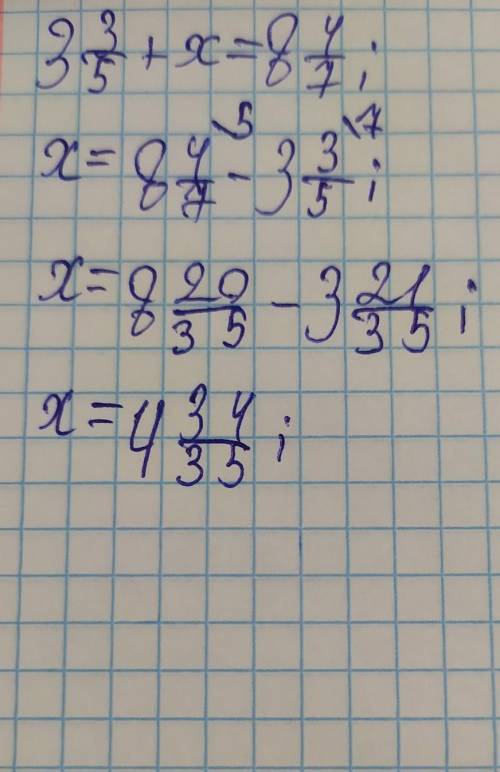 3 3/5 + x = 8 4/7;
x = 8 4/7 \5 - 3 3/5 \7;
x = 8 20/35 - 3 21/35;
x = 4 34/35;